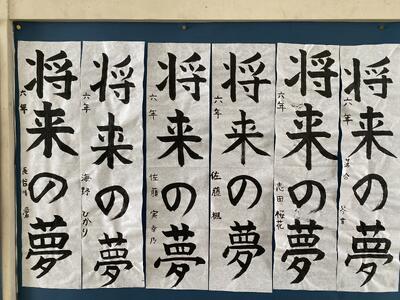 将来の夢
六年
将来の夢
六年 志田 桜花
将来の夢
六年 佐藤 楓
将来の夢
六年 佐藤
将来の夢
六年 海野 ひかり
将来の夢
六年